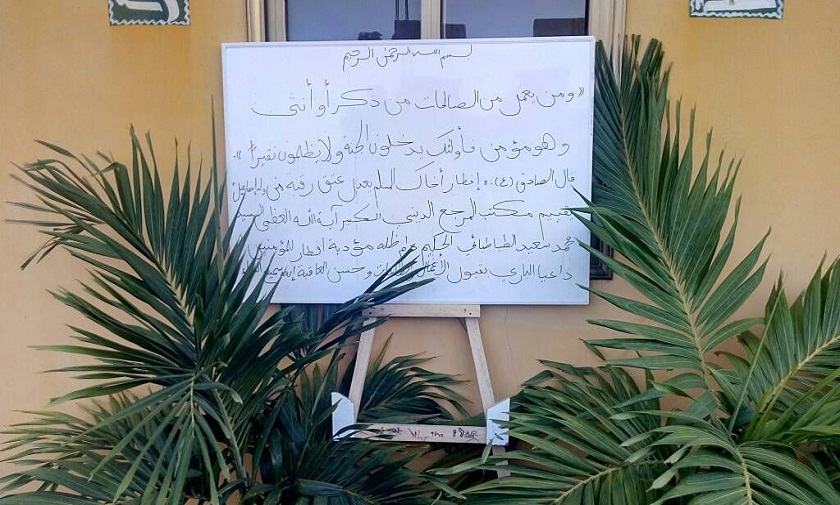 بسم الله الرحمن الرحيم
« ومن يعمل من الصالحات من ذكر أو أنثى
وهو مؤمن فأولئك يدخلون الجنة ولا يظلمون نقيرا »
قال الصادق (ع): إفطار أخاك المسلم يعدل عتق رقبة من ولد إسماعيل
يقيم مكتب المرجع الديني الكبير آية الله العظمى السيد
محمد سعيد الطباطبائي الحكيم دام ظله مؤدبة افطار للمؤمنين
داعيا الباري بقبول الأعمال وحسن العاقبة إنه سميع